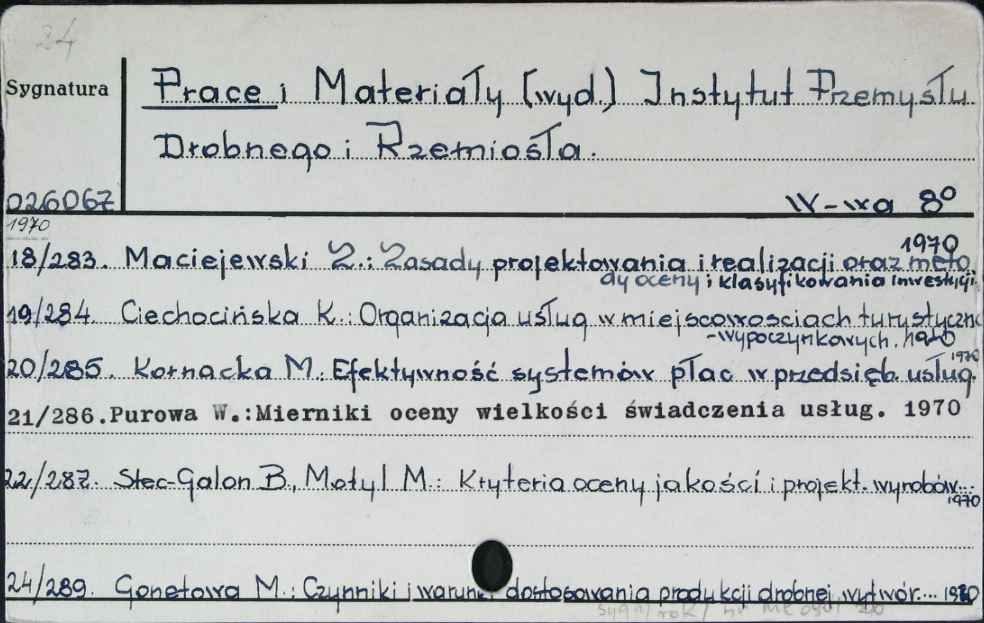 24
Sygnatura
Prace i Materiały (wyd.) Instytut Przemysłu
Drobnego i Rzemiosła.
026067
W-wa 8°
1970
18/283. Maciejewski Z.: Zasady projektowania i realizacji oraz meto
dy oceny i klasyfikowania inwestycji 1970
19/284. Ciechocińska K.: Organizacja usług w miejscowosciach turystyczno
-wypoczynkowych. 1970
20/285. Kornacka M.: Efektywność systemów płac w przedsięb. usług. 1970
21/286.Purowa W.:Mierniki oceny wielkości świadczenia usług. 1970
22/287. Stec-Galon B., Motyl M.: Kryteria oceny jakości i projekt. wyrobów... 1970
24/289. Gonetowa M.: Czynniki i warunki dostosowania produkcji drobnej wytwór... 1970